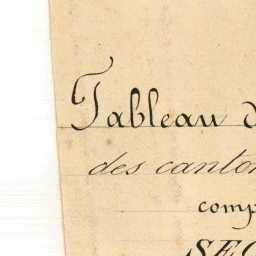 Tableau d
des canton
comp
SEC